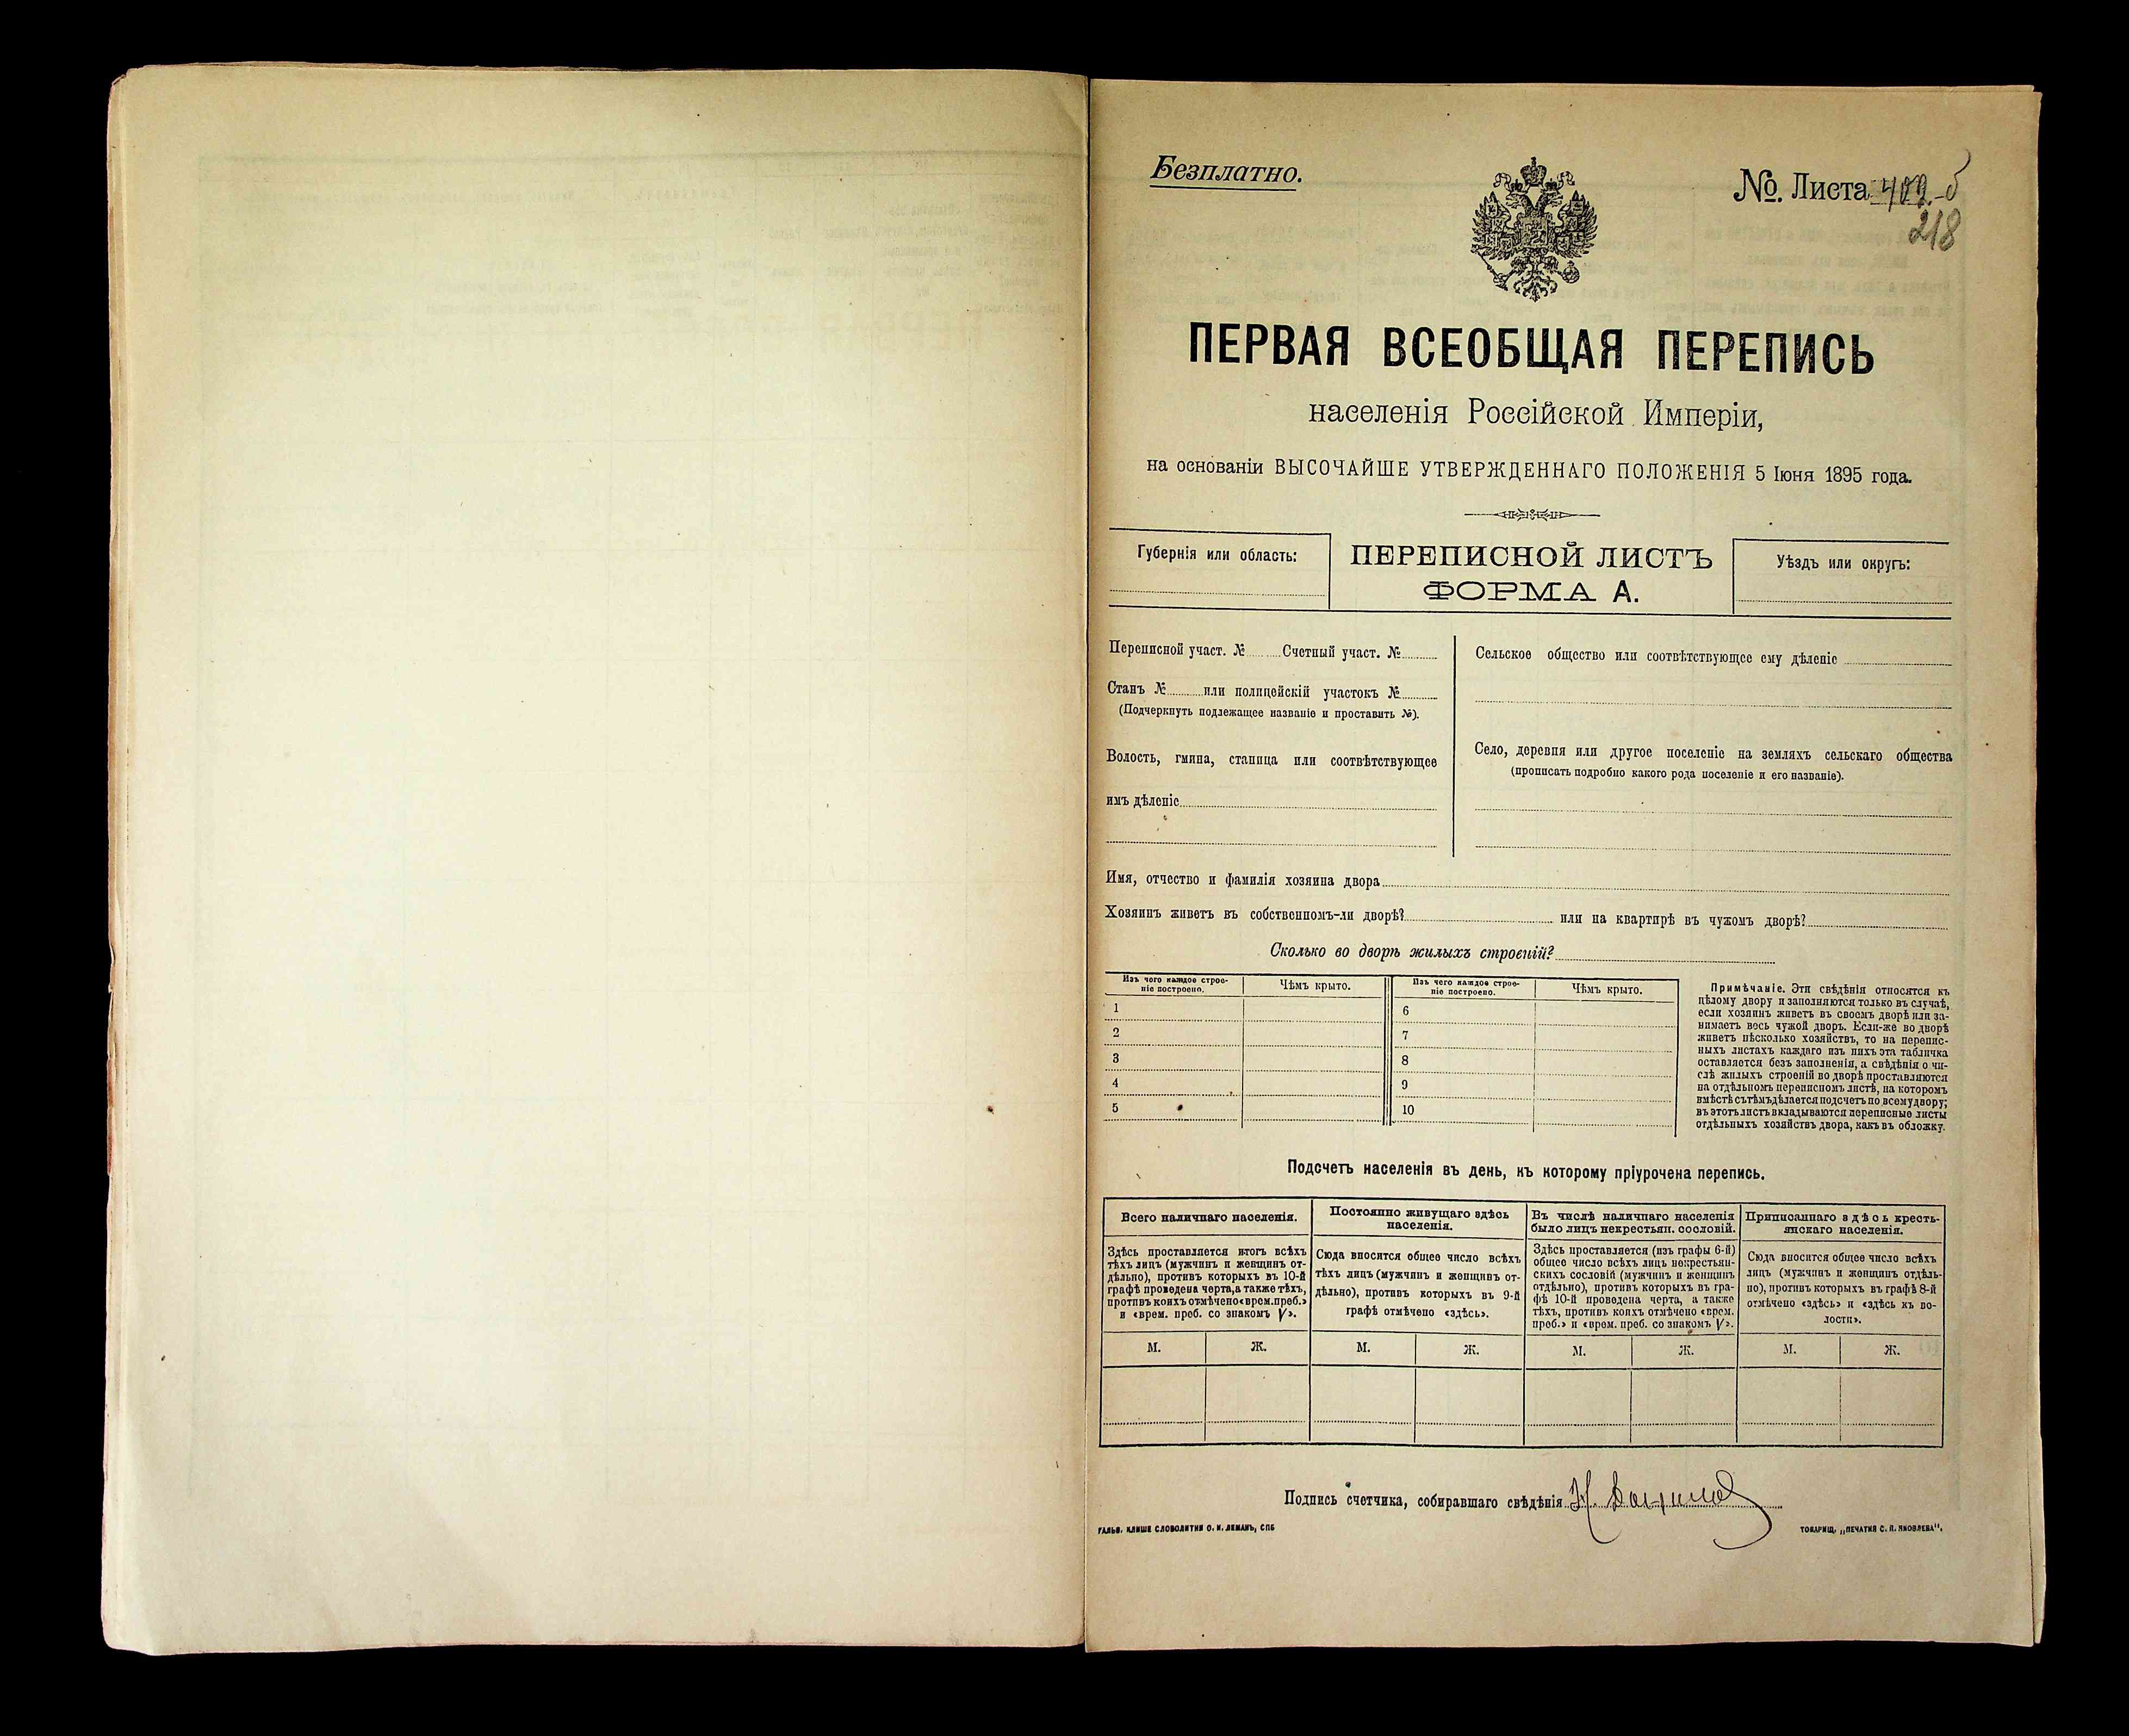 Безплатно.
№. Листа 409.-б
218
ПЕРВАЯ ВСЕОБЩАЯ ПЕРЕПИСЬ
населенія Россійской Имперіи,
на основаніи ВЫСОЧАЙШЕ УТВЕРЖДЕННАГО ПОЛОЖЕНІЯ 5 Іюня 1895 года.
Губернія или область:
ПЕРЕПИСНОЙ ЛИСТЪ
ФОРМА А.
Уѣздъ или округъ:
Переписной участ. № Счетный участ. №
Станъ № или полицейскій участокъ №
(Подчеркнуть подлежащее названіе и проставить №).
Волость, гмина, станица или соотвѣтствующее
имъ дѣленіе
Сельское общество или соотвѣтствующее ему дѣленіе
Село, деревня или другое поселеніе на земляхъ сельскаго общества
(прописать подробно какого рода поселеніе и его названіе).
Имя, отчество и фамилія хозяина двора
Хозяинъ живетъ въ собственномъ-ли дворѣ? или на квартирѣ въ чужомъ дворѣ?
Сколько во дворѣ жилыхъ строеній?
Изъ чего каждое строе-
ніе построено.
Чѣмъ крыто.
Изъ чего каждое строе-
ніе построено.
Чѣмъ крыто.
1
2
3
4
5
6
7
8
9
10
Примѣчаніе. Эти свѣдѣнія относятся къ
цѣлому двору и заполняются только въ случаѣ,
если хозяинъ живетъ въ своемъ дворѣ или за-
нимаетъ весь чужой дворъ. Если-же во дворѣ
живетъ нѣсколько хозяйствъ, то на перепис-
ныхъ листахъ каждаго изъ нихъ эта табличка
оставляется безъ заполненія, а свѣдѣнія о чи-
слѣ жилыхъ строеній во дворѣ проставляются
на отдѣльномъ переписномъ листѣ, на которомъ
вмѣстѣ съ тѣмъ дѣлается подсчетъ по всему двору;
въ этотъ листъ вкладываются переписные листы
отдѣльныхъ хозяйствъ двора, какъ въ обложку.
Подсчетъ населенія въ день, къ которому пріурочена перепись.
Всего наличнаго населенія.
Здѣсь проставляется итогъ всѣхъ
тѣхъ лицъ (мужчинъ и женщинъ от-
дѣльно), противъ которыхъ въ 10-й
графѣ проведена черта, а также тѣхъ,
противъ коихъ отмѣчено «врем. преб.»
и «врем. преб. со знакомъ V».
Постоянно живущаго здѣсь
населенія.
Сюда вносится общее число всѣхъ
тѣхъ лицъ (мужчинъ и женщинъ от-
дѣльно), противъ которыхъ въ 9-й
графѣ отмѣчено «здѣсь».
Въ числѣ наличнаго населенія
было лицъ некрестьян. сословій.
Здѣсь проставляется (изъ графы 6-й)
общее число всѣхъ лицъ некрестьян-
скихъ сословій (мужчинъ и женщинъ
отдѣльно), противъ которыхъ въ гра-
фѣ 10-й проведена черта, а также
тѣхъ, противъ коихъ отмѣчено «врем.
преб.» и «врем. преб. со знакомъ V».
Приписаннаго здѣсь кресть-
янскаго населенія.
Сюда вносится общее число всѣхъ
лицъ (мужчинъ и женщинъ отдѣль-
но), противъ которыхъ въ графѣ 8-й
отмѣчено «здѣсь» и «здѣсь къ во-
лости».
М. Ж. М. Ж. М. Ж. М. Ж.
Подпись счетчика, собиравшаго свѣдѣнія
ГАЛЬВ. КЛИШЕ СЛОВОЛИТНИ О. И. ЛЕМАНЪ, СПБ
ТОВАРИЩ. „ПЕЧАТНЯ С. П. ЯКОВЛЕВА".